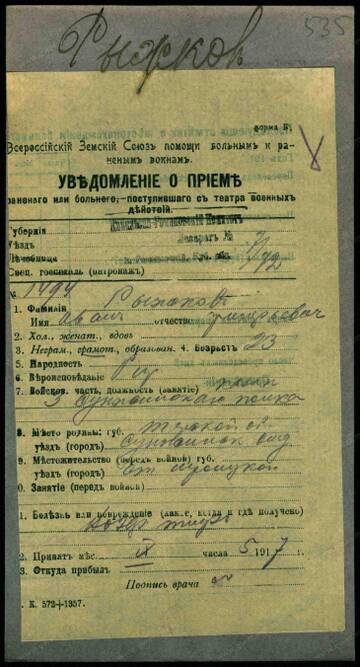 535
Рыжков
форма Б.
Всероссійскій Земскій Союзъ помощи больнымъ и ра-
ненымъ воинамъ.
УВѢДОМЛЕНІЕ О ПРІЕМѢ
раненаго или больного, поступившаго съ театра военныхъ
дѣйствій.
Губернія
Уѣздъ Лазаретъ №
Лечебница
Спец. госпиталь (патронажъ)
№ 1494
1. Фамилія Рыжковъ
Имя Иванъ отчество Дмитріевичъ
2. Хол., женат., вдовъ
3. Неграм., грамот., образован. 4. Возрастъ 23
5. Народность Рус
6. Вѣроисповѣданіе
7. Войсков. часть, должность (занятіе)
3 Сунженскаго полка
8. Мѣсто родины: губ. Терской об
уѣздъ (городъ) Сунженск
9. Мѣстожительство (передъ войной) губ.
уѣздъ (городъ) ст Троицкой
0. Занятіе (передъ войной)
1. Болѣзнь или поврежденіе (какое, когда и гдѣ получено)
Возвр тифъ
2. Принятъ мѣс. IX числа 5 1917 г.
3. Откуда прибылъ
Подпись врача
К. 572+1357.